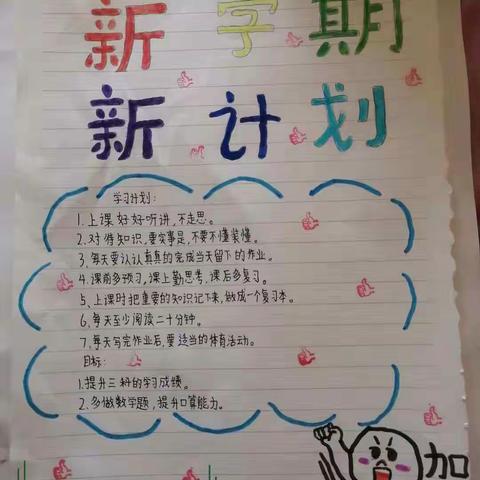 新学期
新计划
学习计划:
1.上课好好听讲,不走思。
2.对待知识,要实事是,不要不懂装懂。
3,每天要认认真真的完成当天留下的作业。
4.课前多预习,课上勤思考,课后多复习。
5,上课时把重要的知识记下来,做成一个复习本。
6,每天至少阅读二十分钟。
7,每天写完作业后,要适当的体育活动。
目标:
1.提升三科的学习成绩。
2.多做数学题,提升口算能力。
加